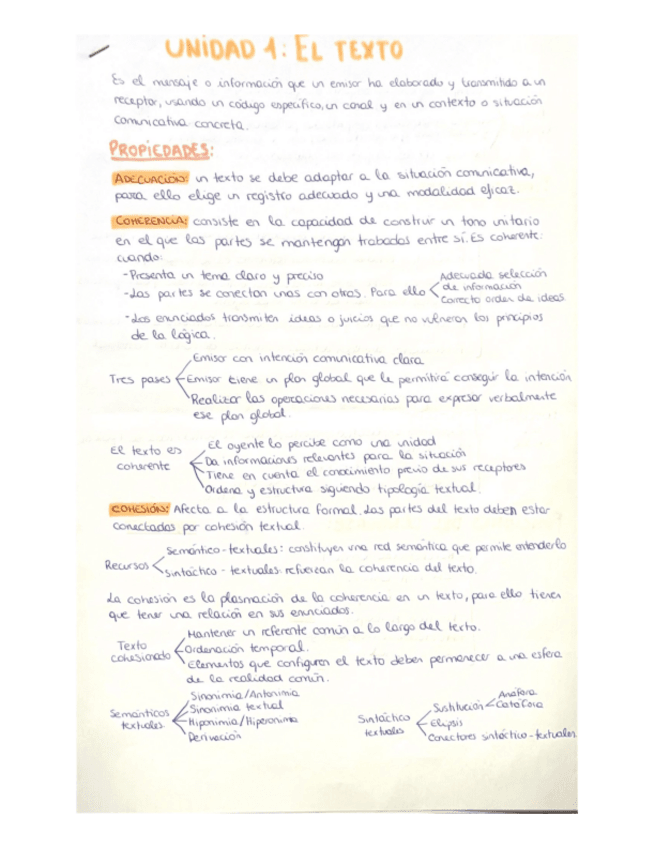 UNIDAD 1: EL TEXTO
Es el mensaje o información que un emisor ha elaborado y transmitido a un
receptor, usando un código específico, un canal y en un contexto o situación
comunicativa concreta.
PROPIEDADES:
ADECUACIÓN: un texto se debe adaptar a la situación comunicativa,
para ello elige un registro adecuado y una modalidad eficaz.
COHERENCIA: consiste en la capacidad de construir un tono unitario
en el que las partes se mantengan trabadas entre sí. Es coherente
cuando:
-Presenta un tema claro y preciso
-Las partes se conectan unas con otras. Para ello
Adecuada selección
de información
Correcto orden de ideas
-Los enunciados transmiten ideas o juicios que no vulneran los principios
de la lógica.
Tres pasos
Emisor con intención comunicativa clara
Emisor tiene un plan global que le permitirá conseguir la intención
Realizar las operaciones necesarias para expresar verbalmente
ese plan global.
El texto es
coherente
El oyente lo percibe como una unidad
Da informaciones relevantes para la situación
Tiene en cuenta el conocimiento previo de sus receptores
Ordena y estructura siguiendo tipología textual.
COHESIÓN: Afecta a la estructura formal. Las partes del texto deben estar
conectadas por cohesión textual.
Recursos
Semántico-textuales: constituyen una red semántica que permite entenderlo
Sintáctico-textuales: refuerzan la coherencia del texto.
La cohesión es la plasmación de la coherencia en un texto, para ello tienen
que tener una relación en sus enunciados.
Texto
cohesionado
Mantener un referente común a lo largo del texto.
Ordenación temporal.
Elementos que configuren el texto deben permanecer a una esfera
de la realidad común.
Semánticos
textuales
Sinonimia/Antonimia
Sinonimia textual
Hiponimia/Hiperonimia
Derivación
Sintáctico
textuales
Sustitución
Anáfora
Catáfora
Elipsis
Conectores sintáctico-textuales.